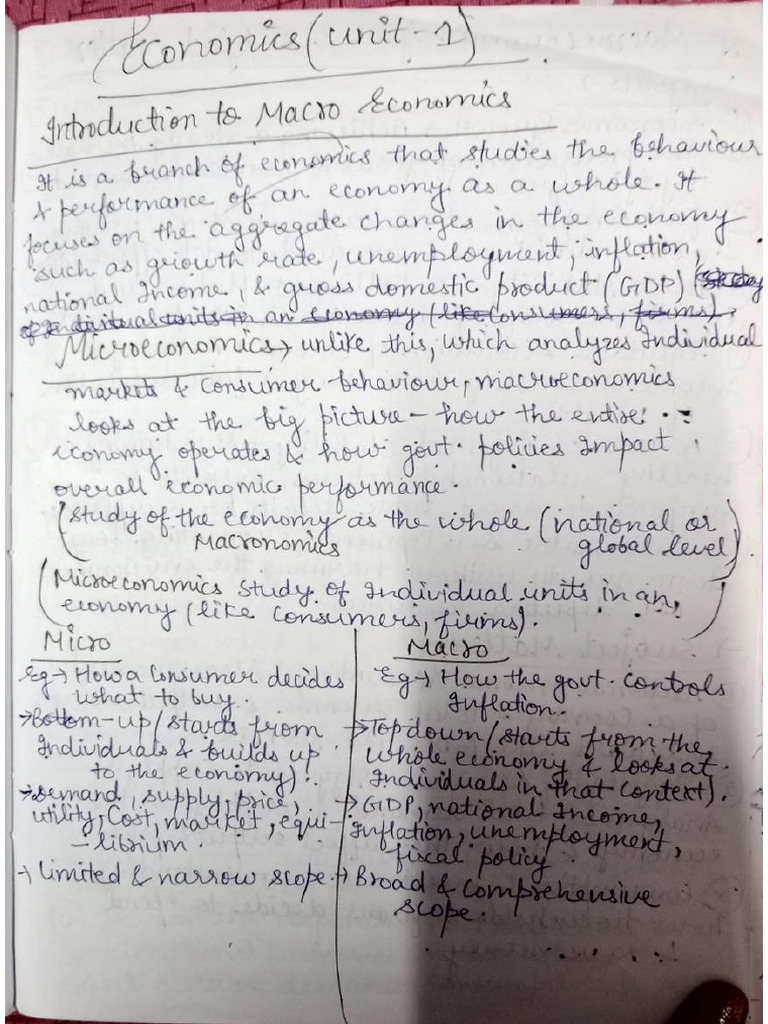 Economics (unit-1)
Introduction to Macro Economics
It is a branch of economics that studies the behaviour
& performance of an economy as a whole. It
focuses on the aggregate changes in the economy
such as growth rate, unemployment, inflation,
national Income, & gross domestic product (GDP) (Study
of individual units in an economy (like consumers, firms).
Microeconomics → unlike this, which analyzes Individual
markets & consumer behaviour, macroeconomics
looks at the big picture - how the entire
economy operates & how govt. policies Impact
overall economic performance.
(Study of the economy as the whole (national or
Macronomics global level)
(Microeconomics study of Individual units in an
economy (like consumers, firms).
Micro
Eg → How a consumer decides
what to buy.
→ Bottom-up (starts from
Individuals & builds up
to the economy).
→ Demand, supply, price,
utility, cost, market, equi-
-librium.
→ Limited & narrow scope.
Macro
Eg → How the govt. controls
Inflation.
→ Top down (starts from the
whole economy & looks at
Individuals in that context).
→ GDP, national Income,
Inflation, unemployment,
fiscal policy.
→ Broad & comprehensive
scope.